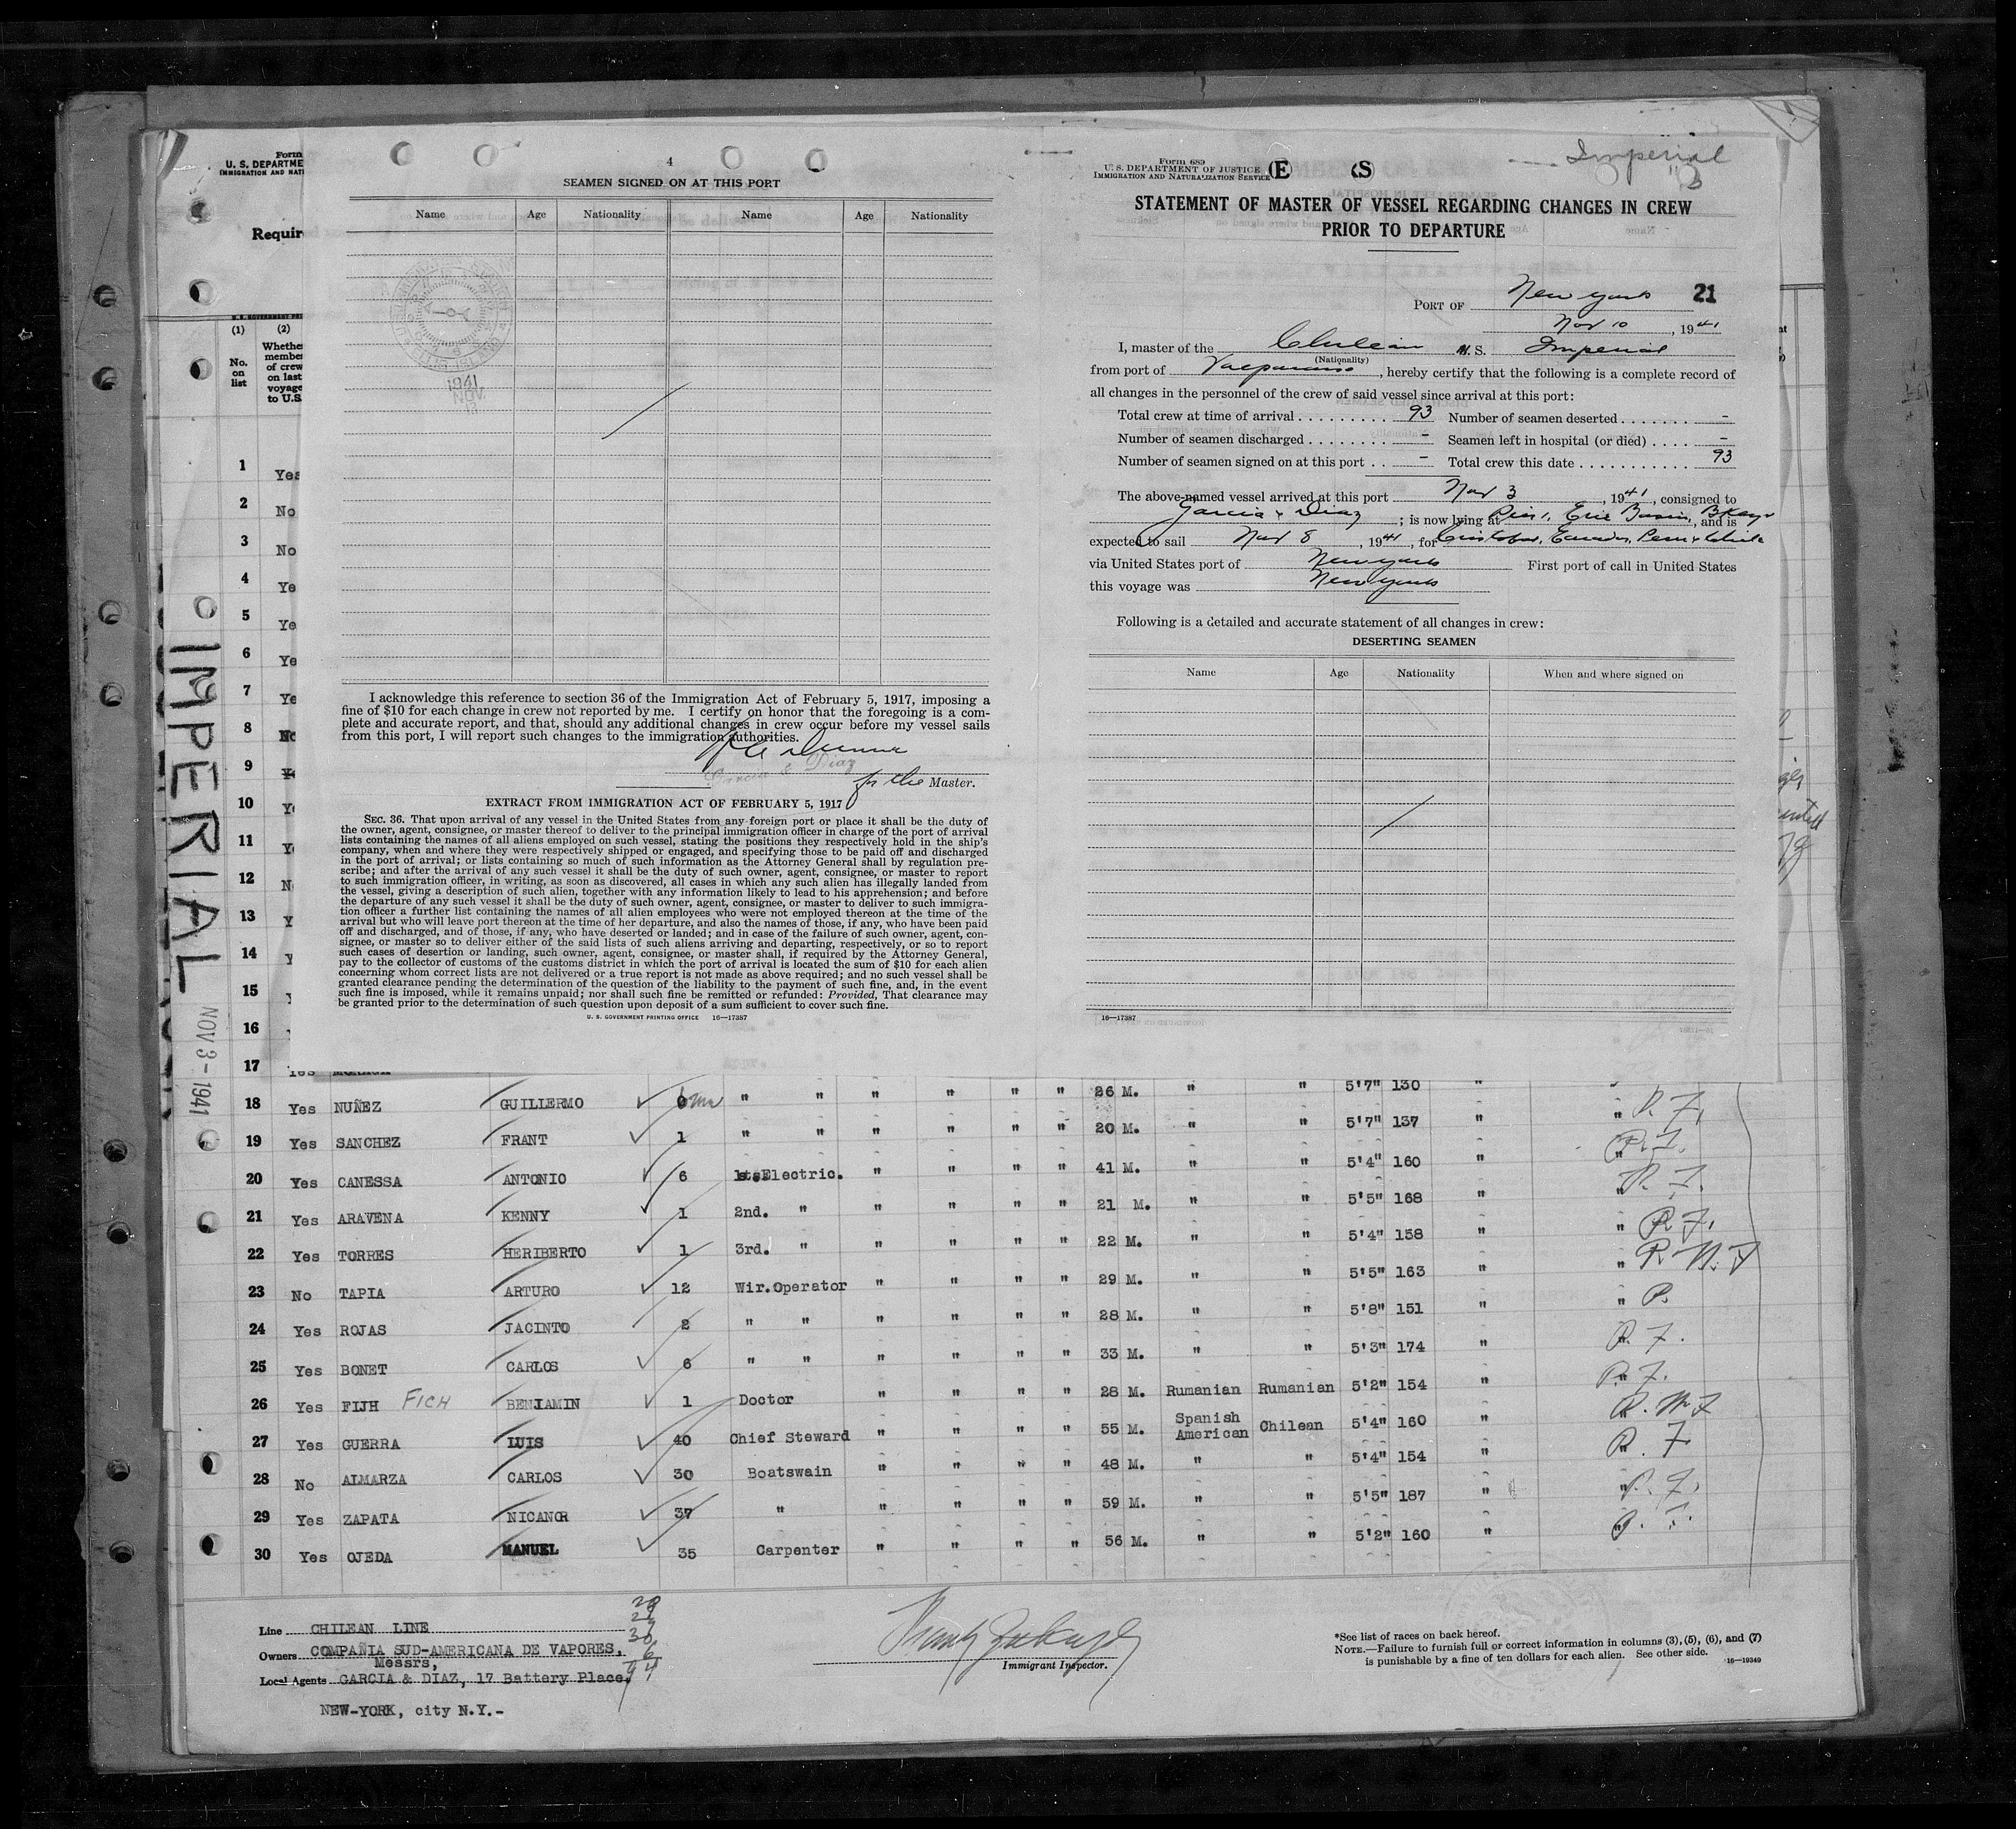 Form
U. S. DEPARTME
IMMIGRATION AND NATI
Requir
(1) (2)
No. on list
Whethe
membe
of crew
on last
voyage
to U.S.
1 Yes
2 No
3 No
4 Ye
5 Ye
6 Ye
7 Ye
8 No
9
10 Y
11 Y
12 N
13 Y
14 Y
15
16
17 Yes
IMPERIAL
NOV 3 - 1941
4
SEAMEN SIGNED ON AT THIS PORT
Name Age Nationality Name Age Nationality
1941
NOV
I acknowledge this reference to section 36 of the Immigration Act of February 5, 1917, imposing a
fine of $10 for each change in crew not reported by me. I certify on honor that the foregoing is a com-
plete and accurate report, and that, should any additional changes in crew occur before my vessel sails
from this port, I will report such changes to the immigration authorities.
Garcia & Diaz
for the Master.
EXTRACT FROM IMMIGRATION ACT OF FEBRUARY 5, 1917
SEC. 36. That upon arrival of any vessel in the United States from any foreign port or place it shall be the duty of
the owner, agent, consignee, or master thereof to deliver to the principal immigration officer in charge of the port of arrival
lists containing the names of all aliens employed on such vessel, stating the positions they respectively hold in the ship's
company, when and where they were respectively shipped or engaged, and specifying those to be paid off and discharged
in the port of arrival; or lists containing so much of such information as the Attorney General shall by regulation pre-
scribe; and after the arrival of any such vessel it shall be the duty of such owner, agent, consignee, or master to report
to such immigration officer, in writing, as soon as discovered, all cases in which any such alien has illegally landed from
the vessel, giving a description of such alien, together with any information likely to lead to his apprehension; and before
the departure of any such vessel it shall be the duty of such owner, agent, consignee, or master to deliver to such immigra-
tion officer a further list containing the names of all alien employees who were not employed thereon at the time of the
arrival but who will leave port thereon at the time of her departure, and also the names of those, if any, who have been paid
off and discharged, and of those, if any, who have deserted or landed; and in case of the failure of such owner, agent, con-
signee, or master so to deliver either of the said lists of such aliens arriving and departing, respectively, or so to report
such cases of desertion or landing, such owner, agent, consignee, or master shall, if required by the Attorney General,
pay to the collector of customs of the customs district in which the port of arrival is located the sum of $10 for each alien
concerning whom correct lists are not delivered or a true report is not made as above required; and no such vessel shall be
granted clearance pending the determination of the question of the liability to the payment of such fine, and, in the event
such fine is imposed, while it remains unpaid; nor shall such fine be remitted or refunded: Provided, That clearance may
be granted prior to the determination of such question upon deposit of a sum sufficient to cover such fine.
U. S. GOVERNMENT PRINTING OFFICE 16—17387
Form 689
U. S. DEPARTMENT OF JUSTICE
IMMIGRATION AND NATURALIZATION SERVICE
(E S)
Imperial
STATEMENT OF MASTER OF VESSEL REGARDING CHANGES IN CREW
PRIOR TO DEPARTURE
PORT OF New York 21
Nov 10, 1941
I, master of the Chilean M. S. Imperial
(Nationality)
from port of Valparaiso, hereby certify that the following is a complete record of
all changes in the personnel of the crew of said vessel since arrival at this port:
Total crew at time of arrival . . . . . . . . . . 93 Number of seamen deserted . . . . . . . -
Number of seamen discharged . . . . . . . . - Seamen left in hospital (or died) . . . . -
Number of seamen signed on at this port . . - Total crew this date . . . . . . . . . . . . 93
The above-named vessel arrived at this port Nov 3, 1941, consigned to
Garcia & Diaz; is now lying at Pier 1, Erie Basin, Bklyn, and is
expected to sail Nov 8, 1941, for Cristobal, Ecuador, Peru & Chile
via United States port of New York First port of call in United States
this voyage was New York
Following is a detailed and accurate statement of all changes in crew:
DESERTING SEAMEN
Name Age Nationality When and where signed on
16—17387
18 Yes NUÑEZ GUILLERMO " " " " " " 26 M. " " 5'7" 130 " "
19 Yes SANCHEZ FRANT 1 " " " " " " 20 M. " " 5'7" 137 " " P. F.
20 Yes CANESSA ANTONIO 6 1st.Electric. " " " " 41 M. " " 5'4" 160 " " P. F.
21 Yes ARAVENA KENNY 1 2nd. " " " " " 21 M. " " 5'5" 168 " " P. F.
22 Yes TORRES HERIBERTO 1 3rd. " " " " " 22 M. " " 5'4" 158 " " P. F.
23 No TAPIA ARTURO 12 Wir.Operator " " " " 29 M. " " 5'5" 163 " " P. N. F
24 Yes ROJAS JACINTO 2 " " " " " " 28 M. " " 5'8" 151 " " P.
25 Yes BONET CARLOS 6 " " " " " " 33 M. " " 5'3" 174 " " P. F.
26 Yes FIJH FICH BENJAMIN 1 Doctor " " " " 28 M. Rumanian Rumanian 5'2" 154 " " P. F.
27 Yes GUERRA LUIS 40 Chief Steward " " " " 55 M. Spanish American Chilean 5'4" 160 " " P. M. F
28 No ALMARZA CARLOS 30 Boatswain " " " " 48 M. " " 5'4" 154 " " P. F
29 Yes ZAPATA NICANOR 37 " " " " " 59 M. " " 5'5" 187 " " P. F.
30 Yes OJEDA MANUEL 35 Carpenter " " " " 56 M. " " 5'2" 160 " " P. F.
Line CHILEAN LINE
Owners COMPAÑIA SUD-AMERICANA DE VAPORES,
Messrs,
Local Agents GARCIA & DIAZ, 17 Battery Place,
NEW-YORK, city N.Y.-
Immigrant Inspector.
*See list of races on back hereof.
NOTE.—Failure to furnish full or correct information in columns (3), (5), (6), and (7)
is punishable by a fine of ten dollars for each alien. See other side. 16—19349